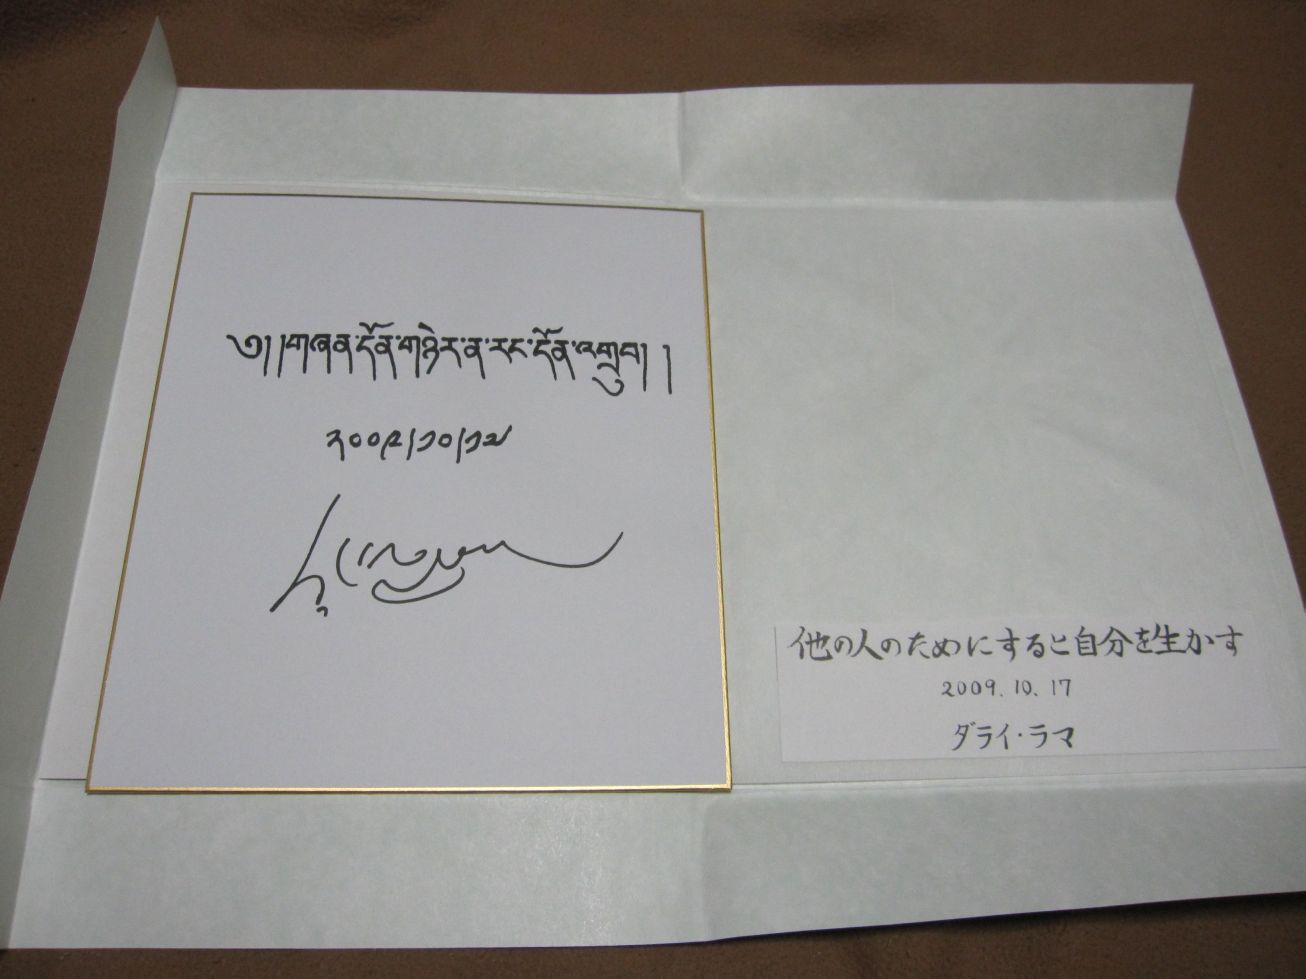 ༄། །གཞན་དོན་གཉེར་ན་རང་དོན་འགྲུབ། །
༢༠༠༩།༡༠།༡༧
他の人のためにすると自分を生かす
2009.10.17
ダライ・ラマ